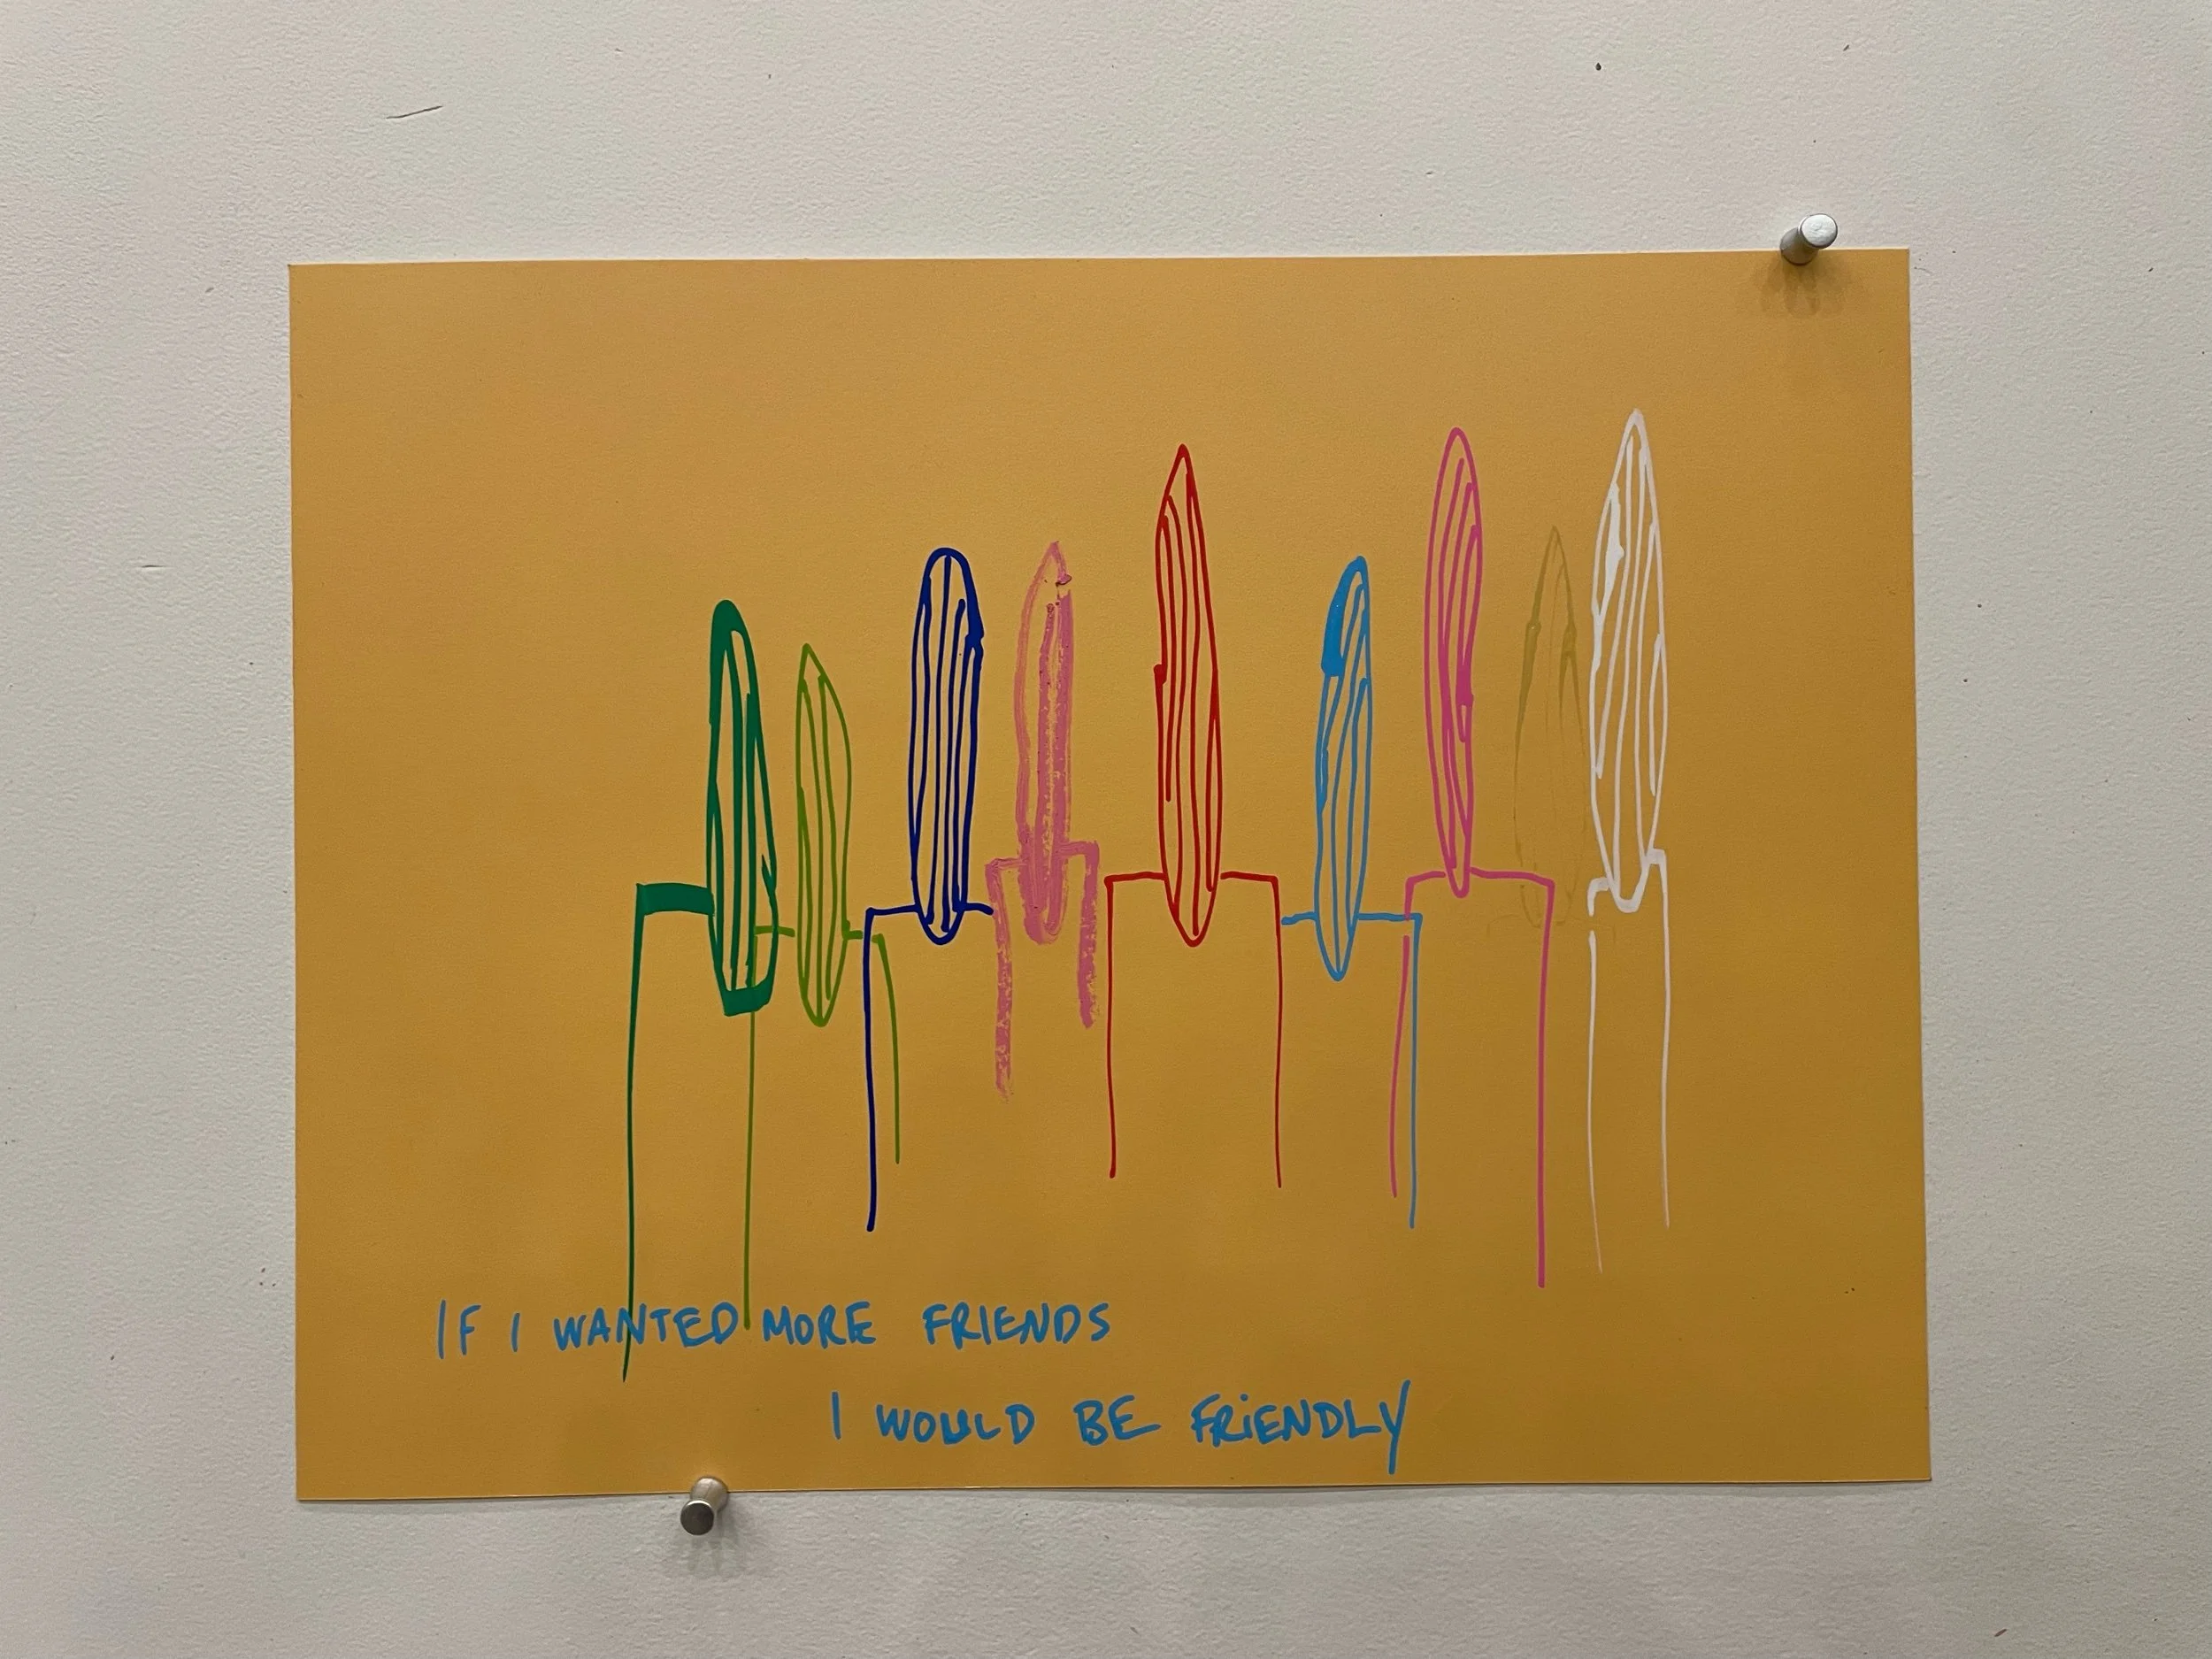 IF I WANTED MORE FRIENDS
I WOULD BE FRIENDLY